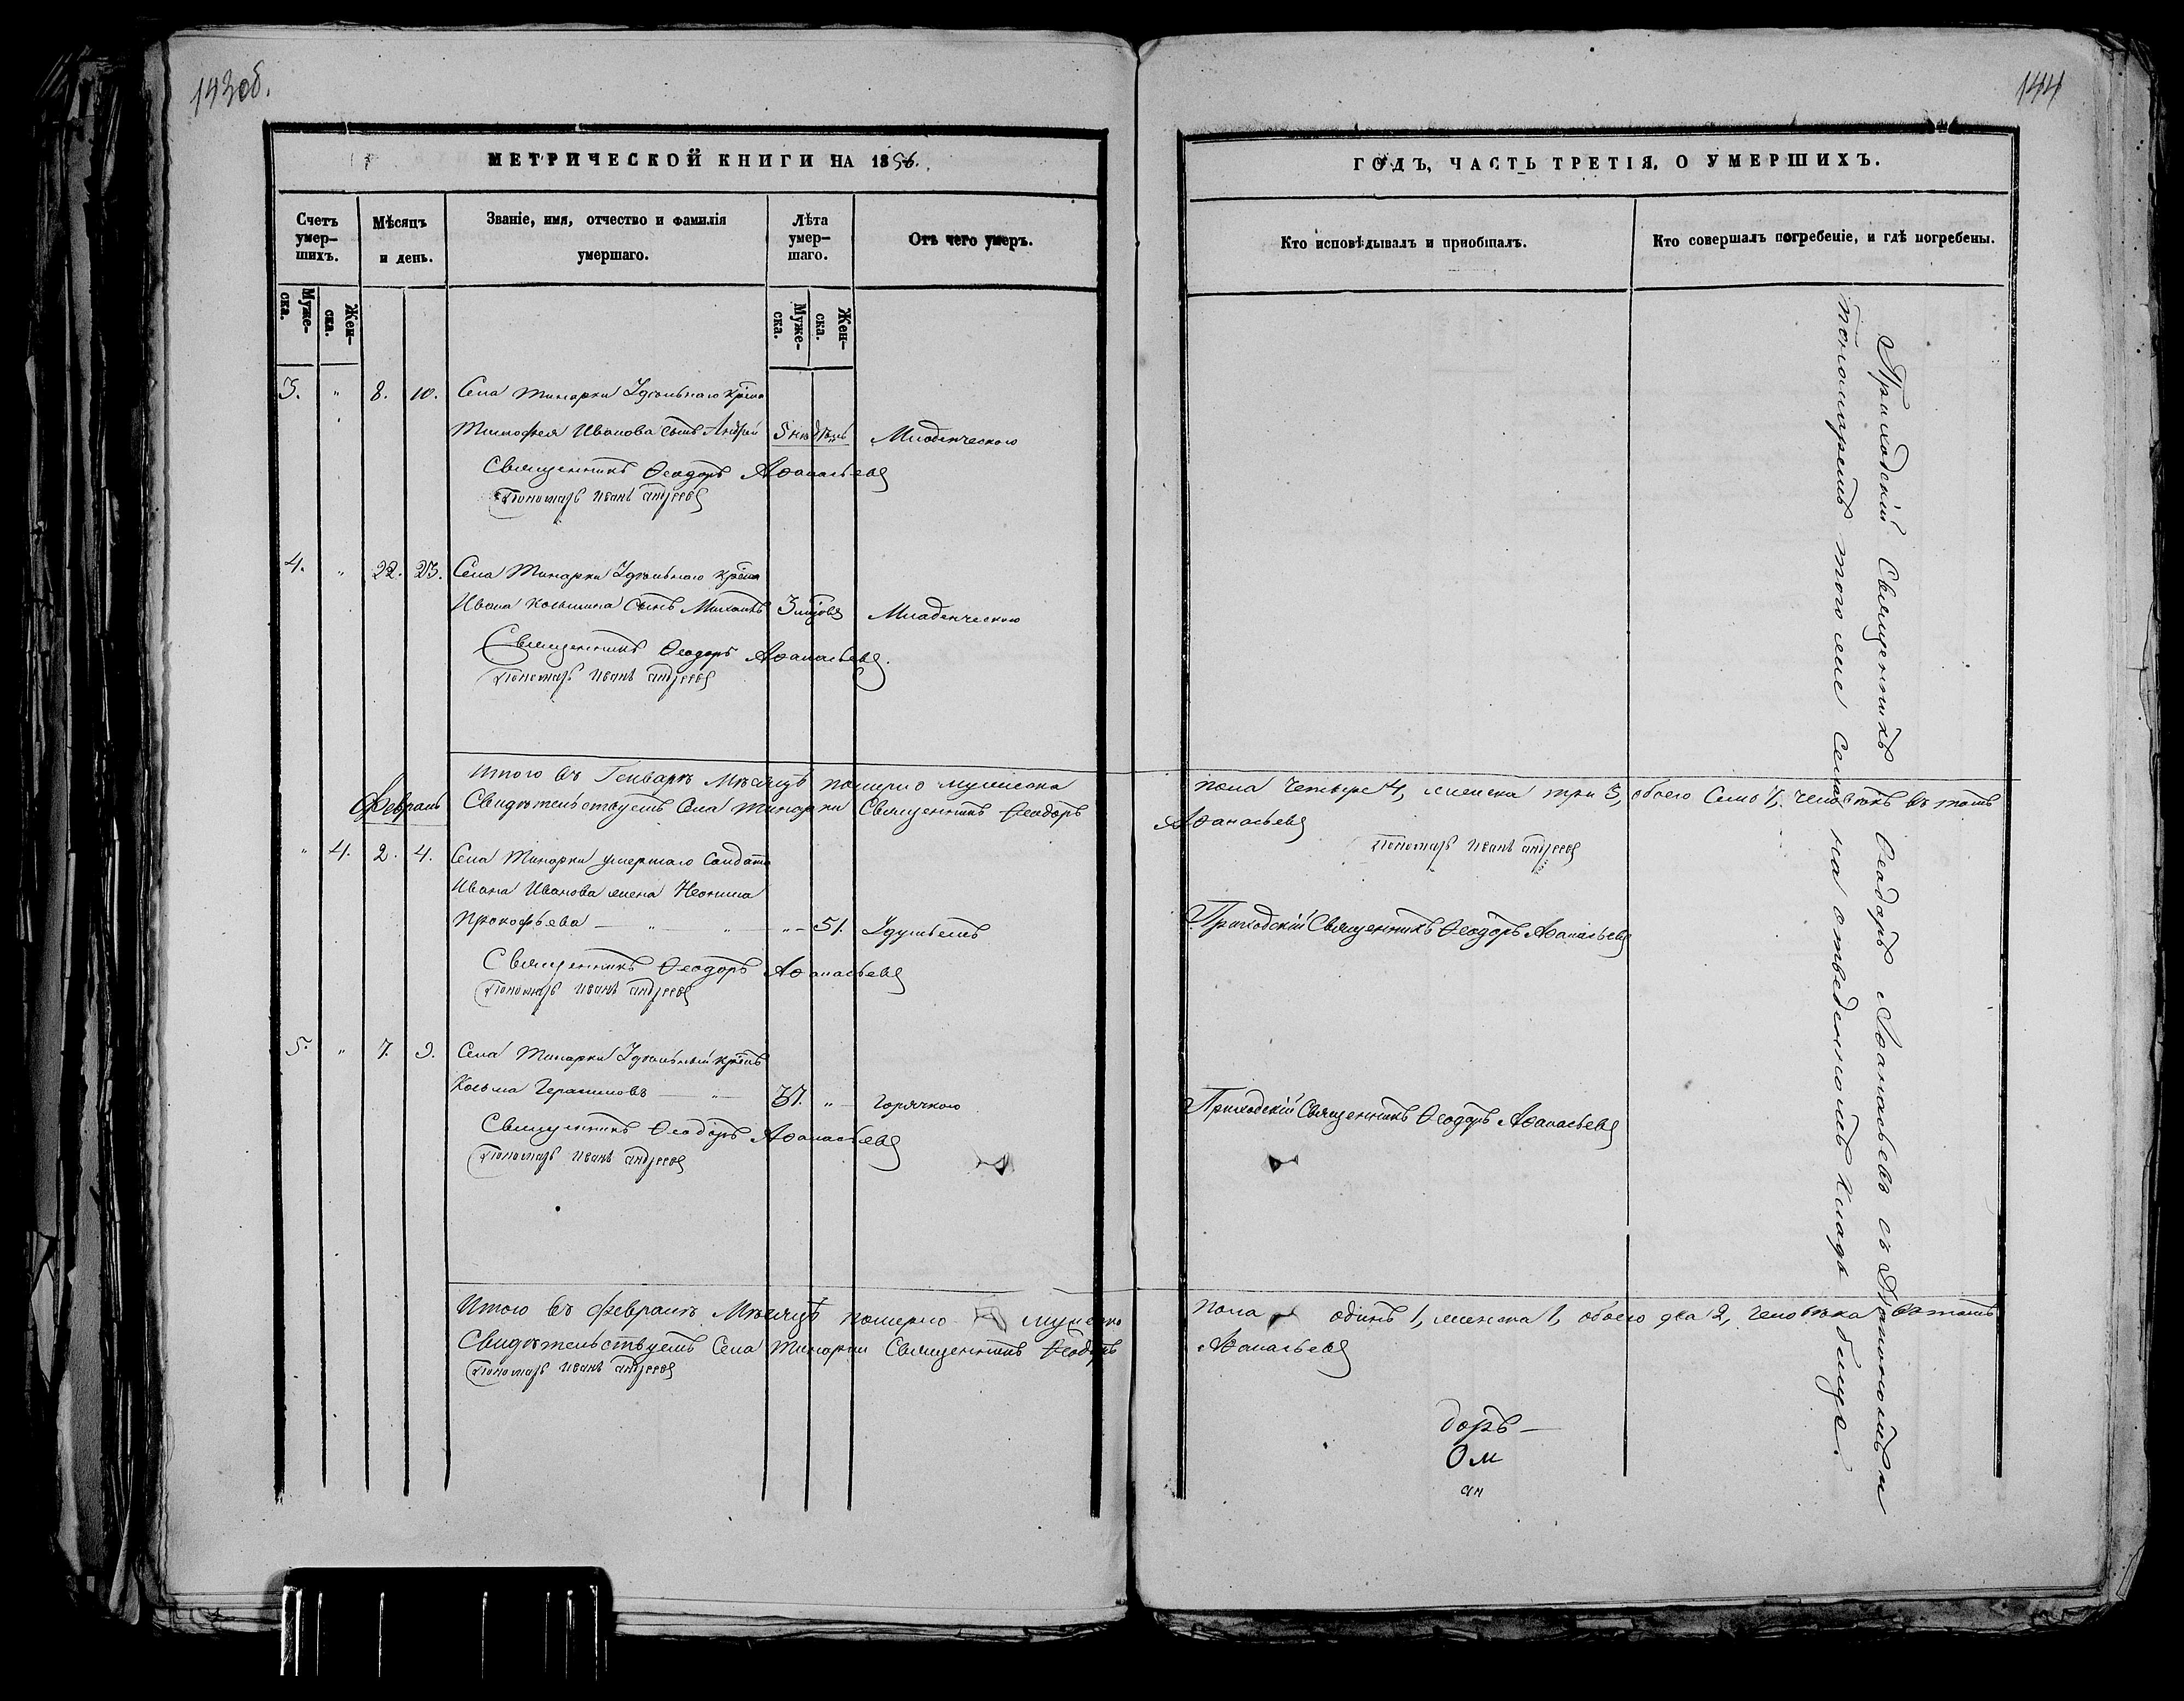 143об.
МЕТРИЧЕСКОЙ КНИГИ НА 1856.
Счетъ умер- шихъ.
Мѣсяцъ и день.
Званіе, имя, отчество и фамилія умершаго.
Лѣта умер- шаго.
Отъ чего умеръ.
Муже- ска.
Жен- ска.
Муже- ска.
Жен- ска.
3. " 8. 10. Села Тинарки Удѣльнаго крѣна
Тимофея Иванова сынъ Андрей 5 недѣль Младенческою
Священникъ Ѳеодоръ Аѳанасьевъ
Пономарь Иванъ Андреевъ
4. " 22. 23. Села Тинарки Удѣльнаго крѣна
Ивана Косьмина сынъ Михаилъ 3 годовъ Младенческою
Священникъ Ѳеодоръ Аѳанасьевъ.
Пономарь Иванъ Андреевъ
Итого въ Генварѣ Мѣсяцѣ померло мужеска
Февраль
Свидѣтельствуемъ Села Тинарки Священникъ Ѳеодоръ
" 4. 2. 4. Села Тинарки умершаго Солдата
Ивана Иванова жена Неонила
Прокофьева — " " "— 51. Удушьемъ
Священникъ Ѳеодоръ Аѳанасьевъ
Пономарь Иванъ Андреевъ
5. " 7. 9. Села Тинарки Удѣльный крѣнъ
Косьма Герасимовъ — " 37. " горячкою
Священникъ Ѳеодоръ Аѳанасьевъ
Пономарь Иванъ Андреевъ
Итого въ Февралѣ Мѣсяцѣ померло мужеска
Свидѣтельствуемъ Села Тинарки Священникъ Ѳеодоръ
Пономарь Иванъ Андреевъ
144
ГОДЪ, ЧАСТЬ ТРЕТІЯ, О УМЕРШИХЪ.
Кто исповѣдывалъ и пріобщалъ.
Кто совершалъ погребеніе, и гдѣ погребены.
пола четыре 4, женска три 3, обоего Семь 7, человѣкъ въ томъ
Аѳанасьевъ
Пономарь Иванъ Андреевъ
Приходскій Священникъ Ѳеодоръ Аѳанасьевъ
Приходскій Священникъ Ѳеодоръ Аѳанасьевъ
пола одинъ 1, женска 1, обоего два 2, человѣка въ томъ
Аѳанасьевъ
доръ —
Ом
ан
Приходскій Священникъ Ѳеодоръ Аѳанасьевъ съ Дьякономъ и
Пономаремъ того же Села на отведенномъ кладбищѣ.